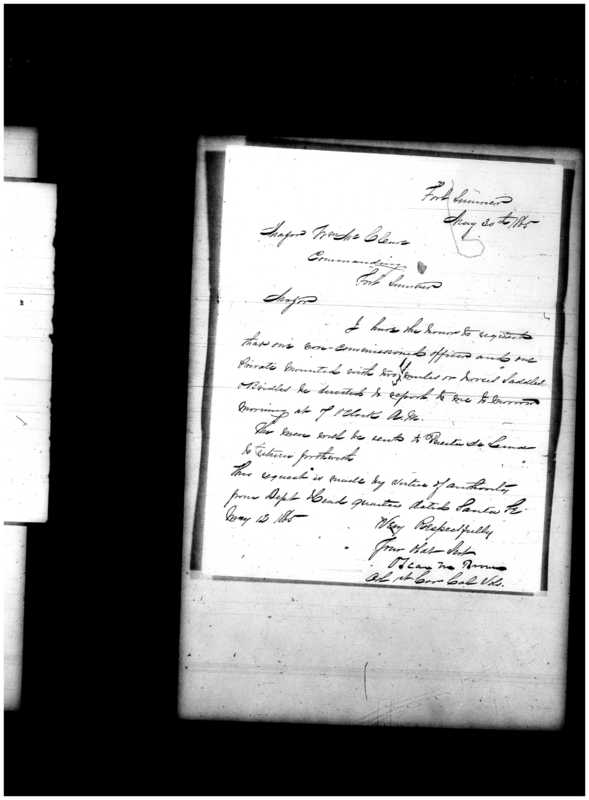 Fort Sumner
May 30th 1865
Major Wm McCleave
Commanding
Fort Sumner
Major
I have the honor to request
that one non-commissioned officer and one
Private mounted with two mules or horses saddled
& bridled be directed to report to me to morrow
morning at 7 O'Clock A.M.
The men will be sent to Puerto de Luna
to return forthwith
This request is made by virtue of authority
from Dept Head quarters dated Santa Fe
May 12 1865
Very Respectfully
Your Obt Svt
Oscar M Brown
Col 1st Cav Cal Vols.